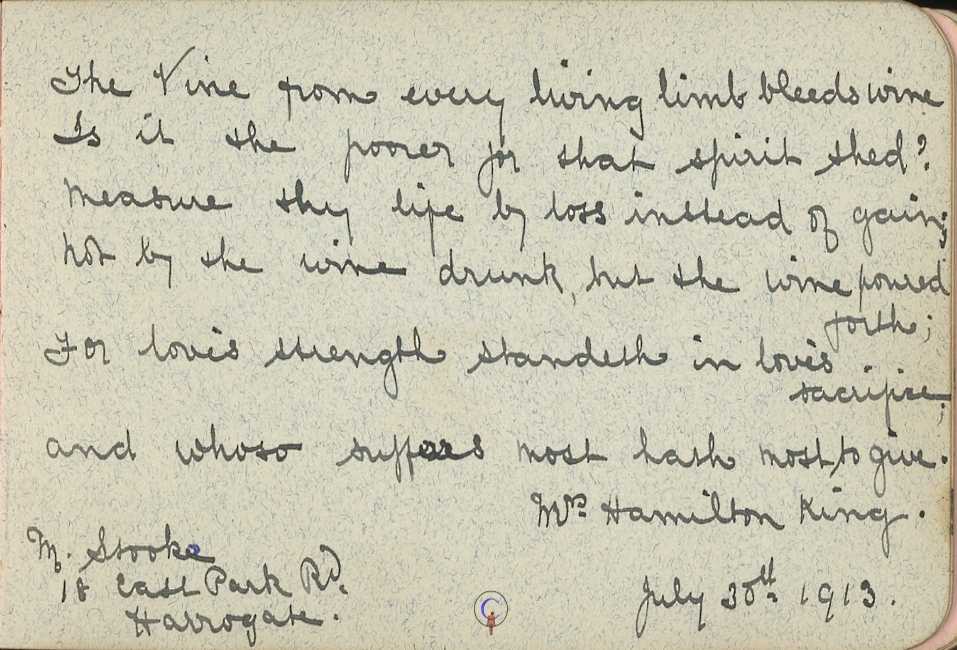 The Vine from every living limb bleeds wine
Is it the poorer for that spirit shed?
Measure thy life by loss instead of gain;
Not by the wine drunk, but the wine poured
forth;
For love's strength standeth in love's
sacrifice;
and whoso suffers most hath most to give.
Mrs Hamilton King.
M. Stooke
18 East Park Rd.
Harrogate.
July 30th 1913.
C